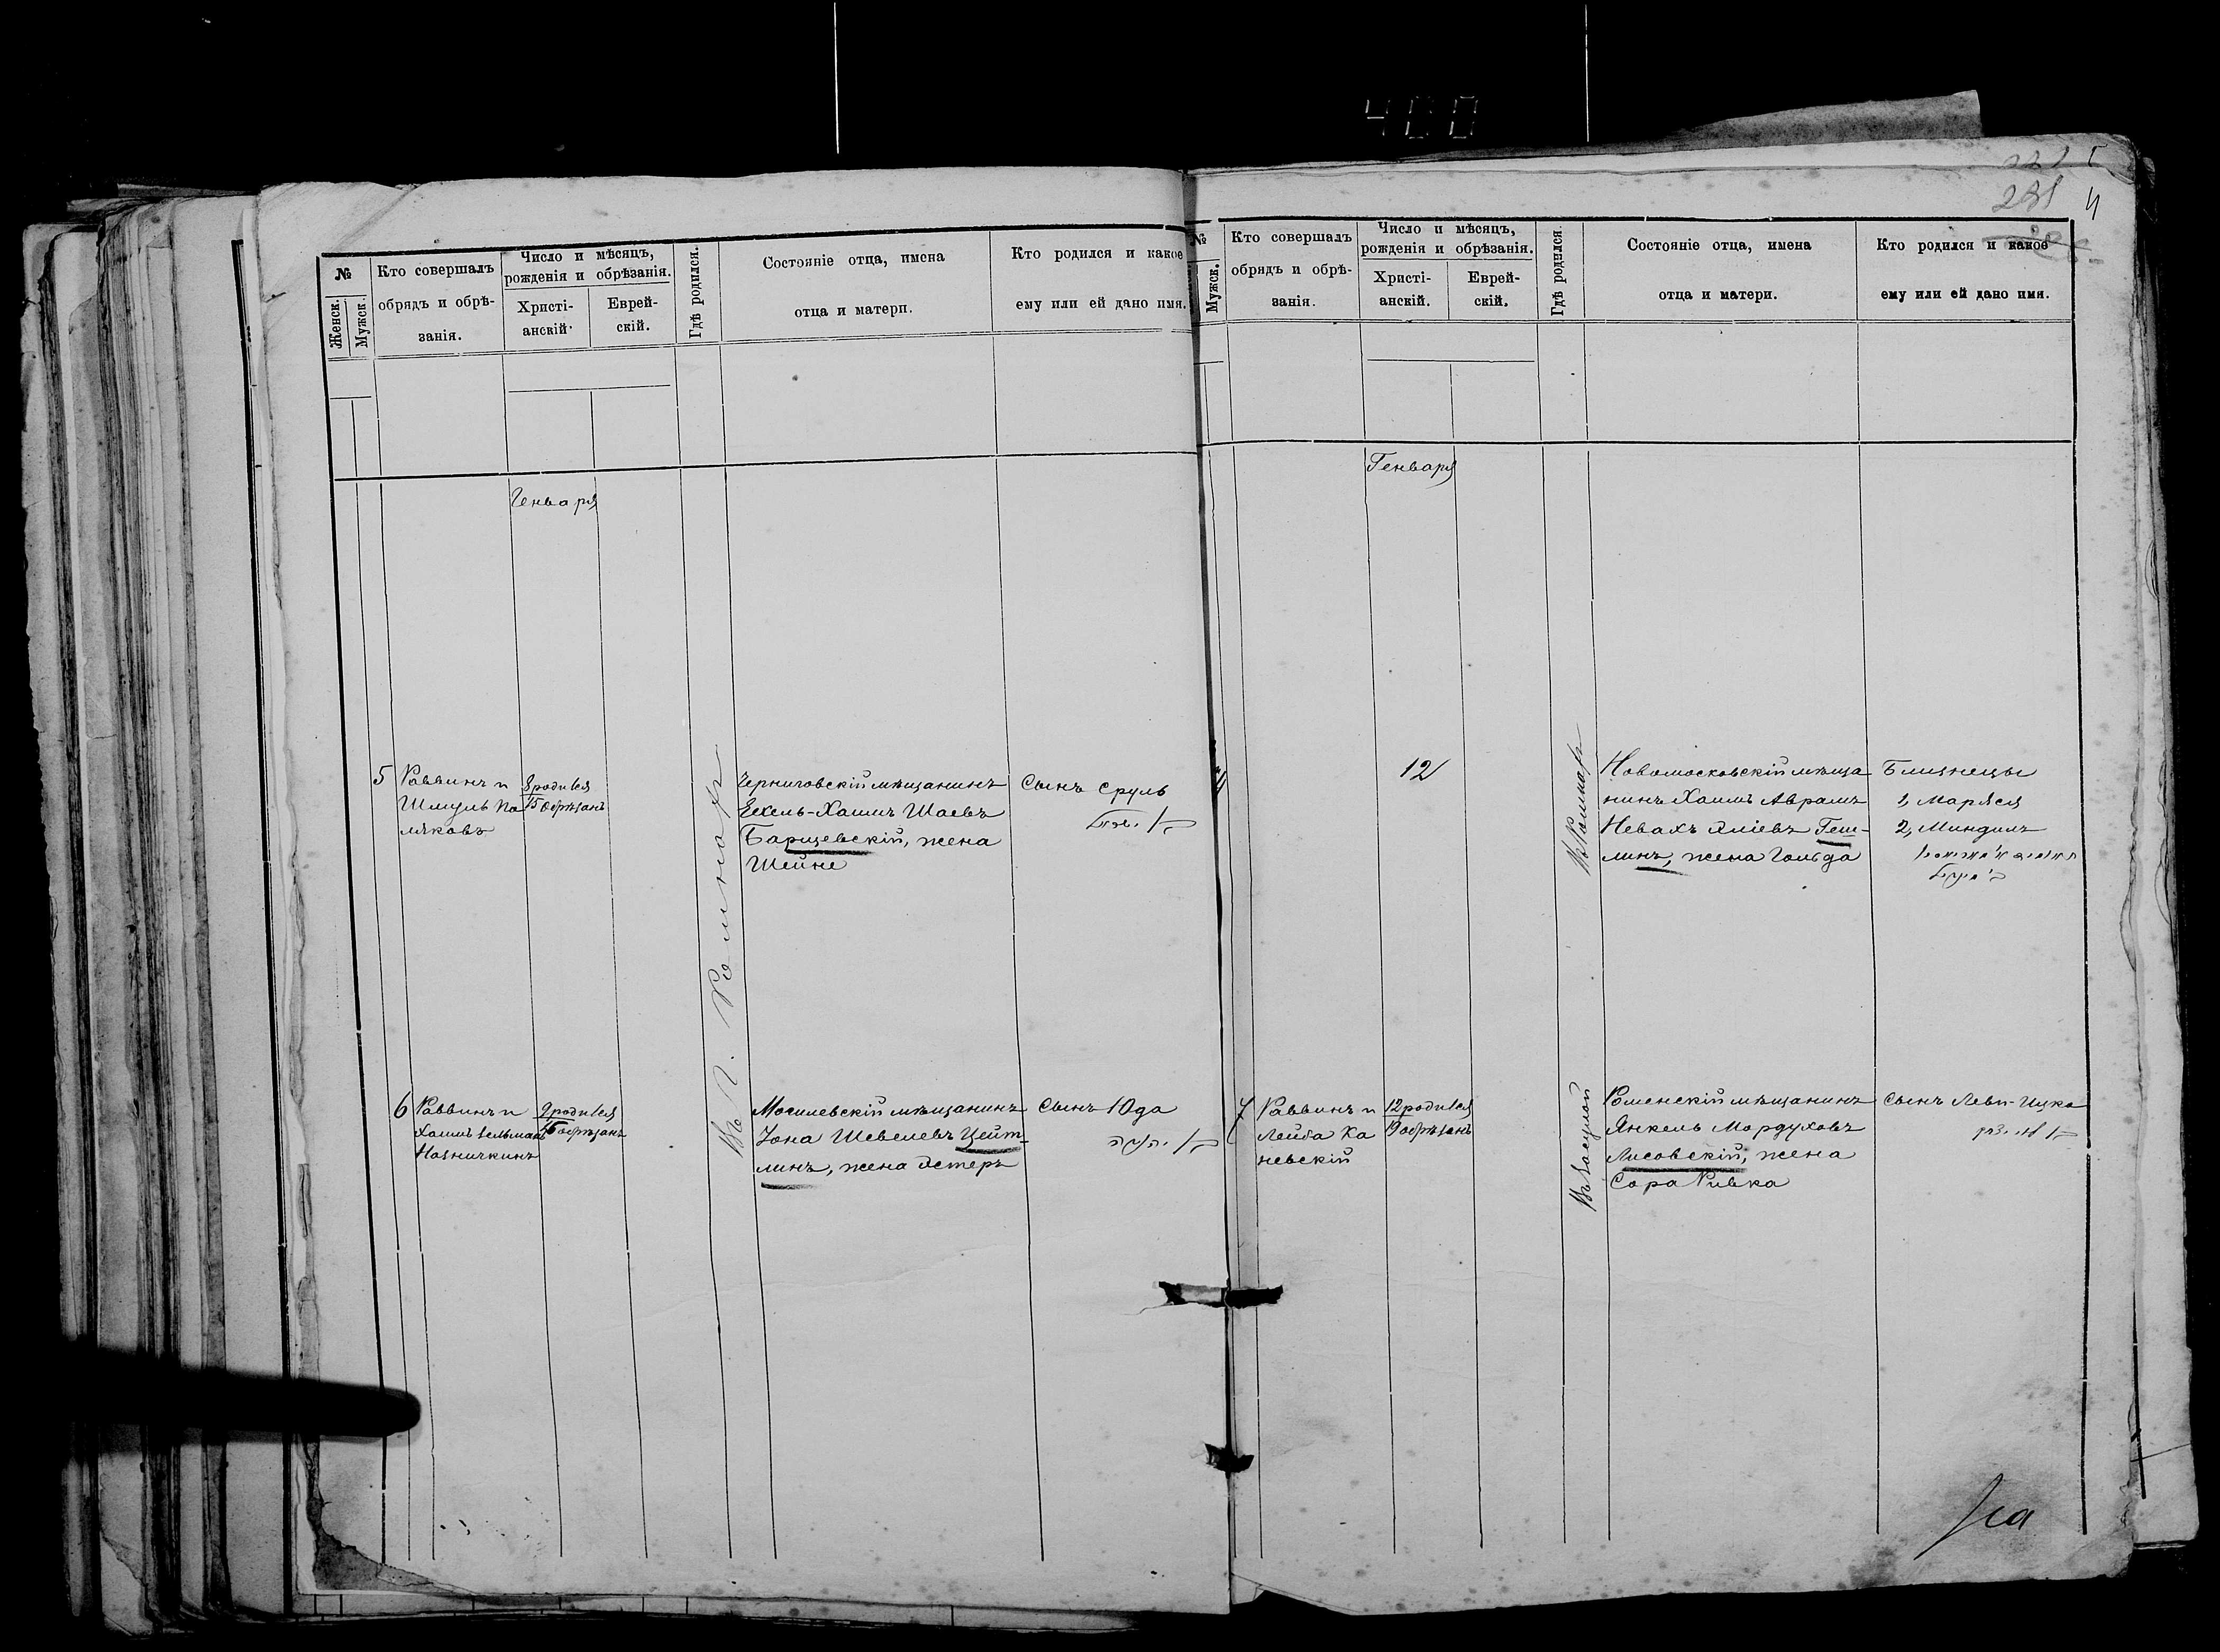 400
231 4
№
Женск.
Мужск.
Кто совершалъ
обрядъ и обрѣ-
занія.
Число и мѣсяцъ,
рожденія и обрѣзанія.
Христі-
анскій.
Еврей-
скій.
Гдѣ родился.
Состояніе отца, имена
отца и матери.
Кто родился и какое
ему или ей дано имя.
Генваря
5
Раввинъ и
Шмуль По
ляковъ
8 родился
15 обрѣзанъ
Въ г. Ромнахъ
Черниговскій мѣщанинъ
Хаимъ Шаевъ
Барщевскій, жена
Шейне
Сынъ Сруль
6
Раввинъ и
Хаимъ Зельманъ
9 родился
16 обрѣзанъ
Могилевскій мѣщанинъ
Іона Шевелевъ Цейт-
линъ, жена Эстеръ
Сынъ Юда
№
Мужск.
Кто совершалъ
обрядъ и обрѣ-
занія.
Число и мѣсяцъ,
рожденія и обрѣзанія.
Христі-
анскій.
Еврей-
скій.
Гдѣ родился.
Состояніе отца, имена
отца и матери.
Кто родился и какое
ему или ей дано имя.
Генваря
12
Въ Ромнахъ
Новомосковскій мѣща
нинъ Хаимъ Аврамъ
Невахъ Эліевъ Геш-
линъ, жена Гольда
Близнецы
1, Маряся
2, Миндиль
7
Раввинъ и
Лейба Ка
невскій
12 родился
19 обрѣзанъ
Роменскій мѣщанинъ
Янкель Мордуховъ
Лисовскій, жена
Сора Ривка
Сынъ Леви-Ицко